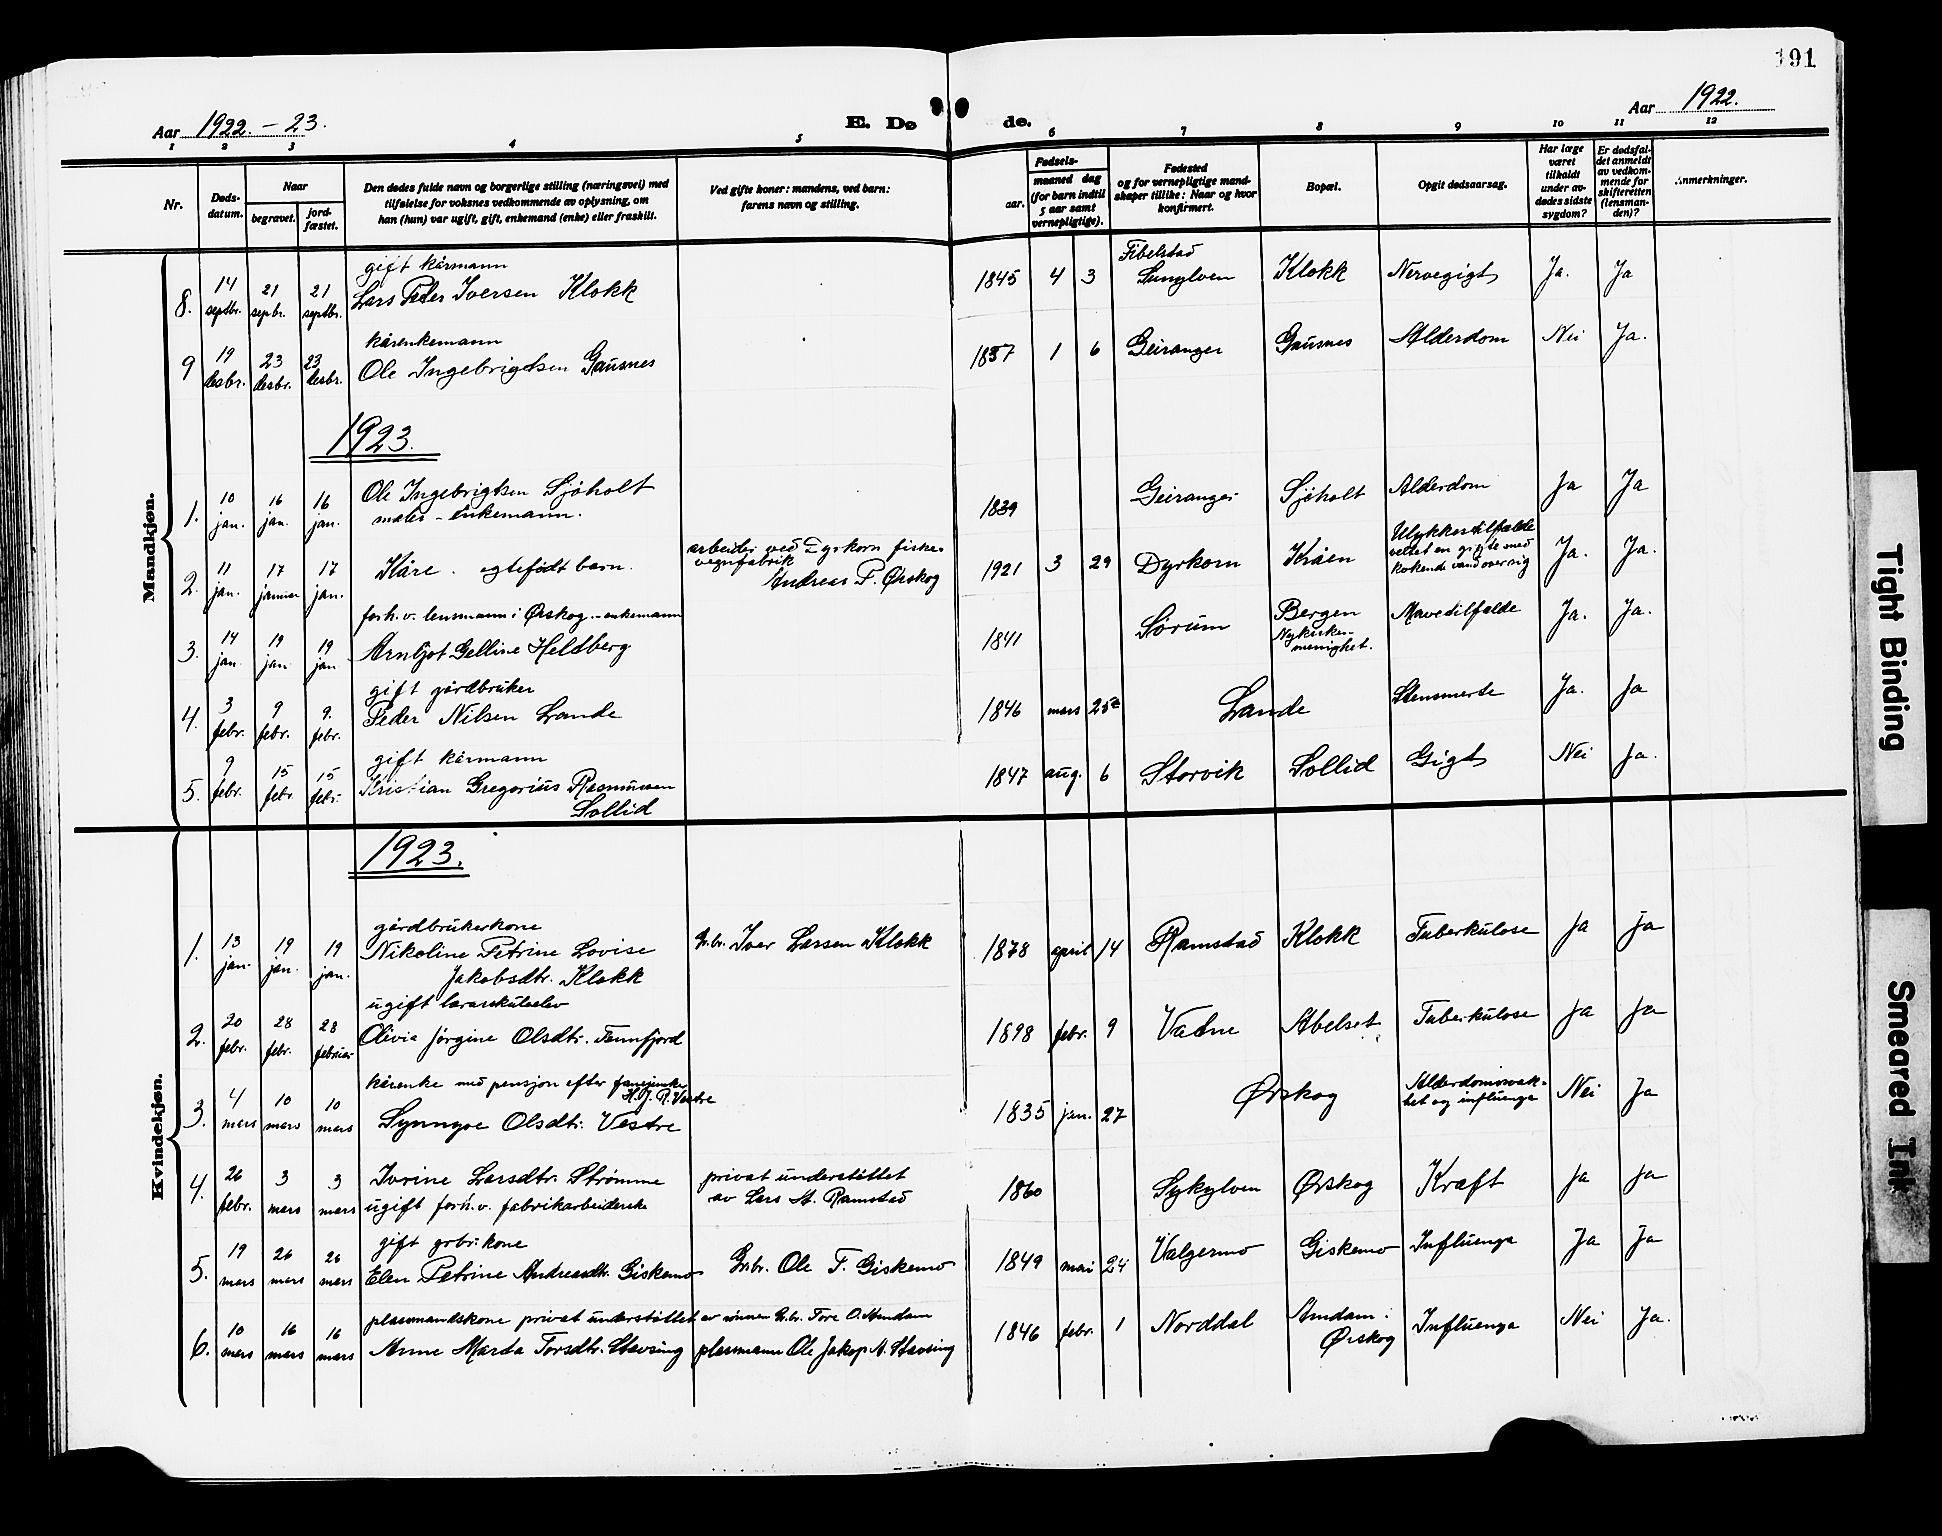 191
Aar 1922. - 23.
E. Dø
de.
Aar 1922.
1 2 3 4 5 6 7 8 9 10 11 12
Nr.
Døds-
datum.
Naar
begravet.
jord-
fæstet.
Den dødes fulde navn og borgerlige stilling (næringsvei) med
tilføielse for voksnes vedkommende av oplysning, om
han (hun) var ugift, gift, enkemand (enke) eller fraskilt.
Ved gifte koner: mandens, ved barn:
farens navn og stilling.
Fødsels-
aar.
maaned dag
(for barn indtil
5 aar samt
vernepligtige).
Fødested
og for vernepligtige mand-
skaper tillike: Naar og hvor
konfirmert.
Bopæl.
Opgit dødsaarsag.
Har læge
været
tilkaldt
under av-
dødes sidste
sygdom?
Er dødsfal-
det anmeldt
av vedkom-
mende for
skifteretten
(lensman-
den)?
Anmerkninger.
Mandkjøn.
gift kårmann
8. 14 septbr. 21 sepbr. 21 septbr. Lars Peder Iversen Klokk 1845 4 3 Fibelstad Sunylven Klokk Nervegigt Ja. Ja
kårenkemann
9 19 desbr. 23 desbr. 23 desbr. Ole Ingebrigtsen Gausnes 1837 1 6 Geiranger Gausnes Alderdom Nei Ja.
1923.
1. 10 jan. 16 jan. 16 jan. Ole Ingebrigtsen Sjøholt 1839 Geiranger Sjøholt Alderdom Ja Ja
maler - enkemann.
2. 11 jan. 17 januar 17 jan. Kåre. egtefødt barn. arbeider ved Dyrkorn fiske-
vegnfabrik
Andreas P. Ørskog 1921 3 29 Dyrkorn Kråen Ulykkestilfælde
veltet en gryte med
kokende vand over sig Ja. Ja.
forh.v. lensmann i Ørskog. - enkemann
3. 14 jan. 19 jan 19 jan Arnljot Gelline Heldberg 1841 Sørum Bergen
Nykirke-
menighet. Mavetilfælde Ja. Ja.
gift gårdbruker
4. 3 febr. 9 febr. 9. febr. Peder Nilsen Lande 1846 mars 25 Lande Stensmerte Ja. Ja
gift kårmann
5. 9 febr. 15 febr 15 febr. Kristian Gregorius Rasmussen
Sollid 1847 aug. 6 Storvik Sollid Gigt Nei Ja.
Kvindekjøn.
1923.
gårdbrukerkone
1. 13 jan. 19 jan. 19 jan. Nikoline Petrine Lovise
Jakobsdtr. Klokk Gr.br. Iver Larsen Klokk 1878 april 14 Ramstad Klokk Tuberkulose Ja Ja
ugift lærarskuleelev
2. 20 febr. 28 febr. 28 februar Olivia Jørgine Olsdtr. Tennfjord 1898 febr. 9 Vatne Abelset Tuberkulose Ja Ja
kårenke med pensjon efter fanejunker
H. J. R. Vestre
3. 4 mars 10 mars 10 mars Synnøve Olsdtr. Vestre 1835 jan. 27 Ørskog Alderdomsvak-
het og influenza Nei Ja
4. 26 febr. 3 mars 3 mars Ivrine Larsdtr. Strømme privat understøttet
av Lars A. Ramstad 1860 Sykylven Ørskog Kræft Ja Ja
ugift forh.v. fabrikarbeiderske
gift grbr.kone
5. 19 mars 26 mars 26 mars Elen Petrine Andreasdtr. Giskemo Gr.br. Ole T. Giskemo 1849 mai 24 Valgermo Giskemo Influenza Ja Ja
plassmandskone privat understøttet av sønnen Gr.br. Tore O. Amdam
6. 10 mars 16 mars 16 mars Anne Marta Torsdtr. Stavsing plassmann Ole Jakop A. Stavsing 1846 febr. 1 Norddal Amdam i
Ørskog Influenza Nei Ja.
Tight Binding
Smeared Ink